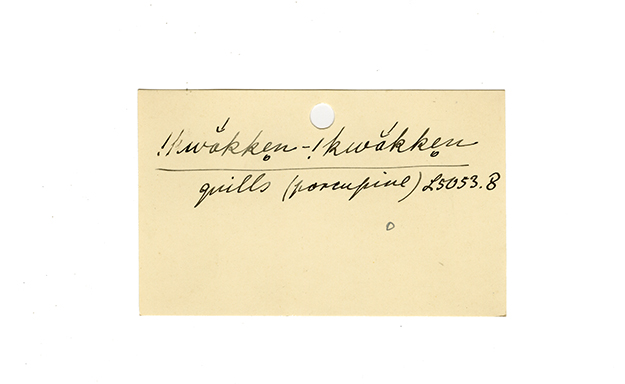 !kwákkẹn-!kwákkẹn
quills (porcupine) L5053.B
D